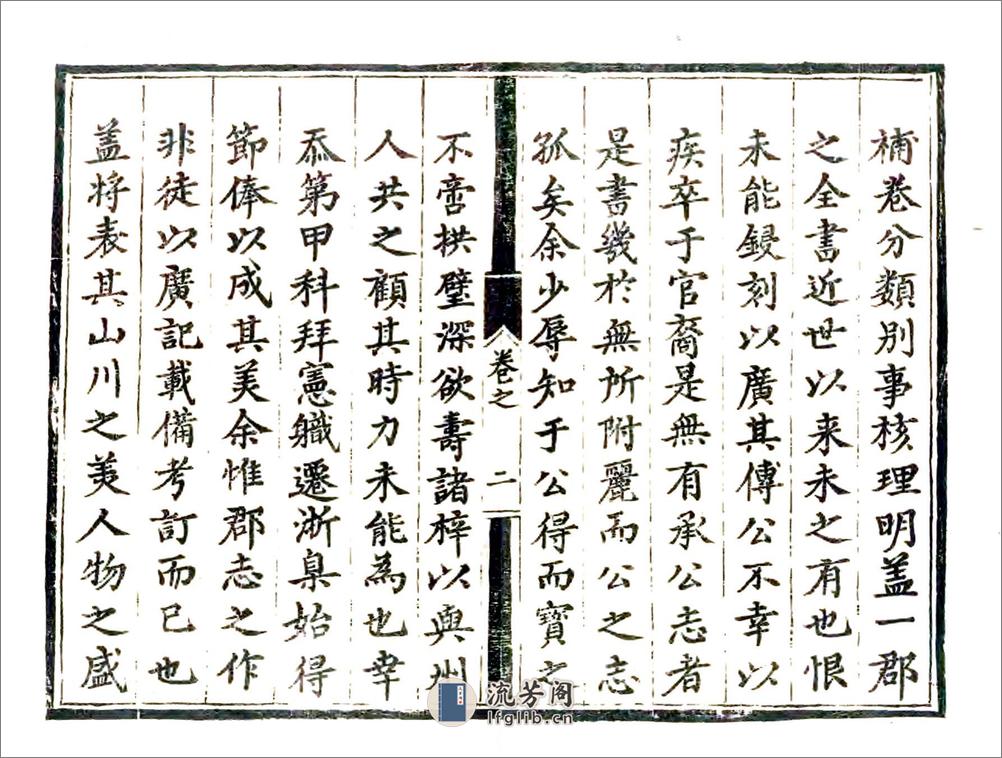 補卷分類別事核理明蓋一郡
之全書近世以来未之有也恨
未能鋟刻以廣其傳公不幸以
疾卒于官裔是無有承公志者
是書幾於無所附麗而公之志
孤矣余少辱知于公得而寳之
卷之
二
不啻拱璧深欲壽諸梓以與州
人共之顧其時力未能為也幸
忝第甲科拜憲職遷浙臬始得
節俸以成其美余惟郡志之作
非徒以廣記載備考訂而已也
蓋将表其山川之美人物之盛
流芳阁
lfglib.cn